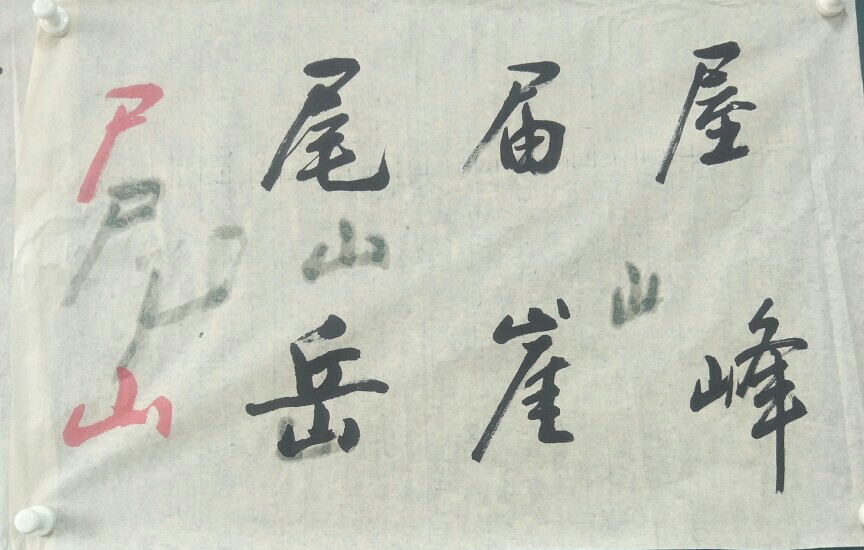 尸 尾 届 屋
尸
山 山
山 岳 崖 峰